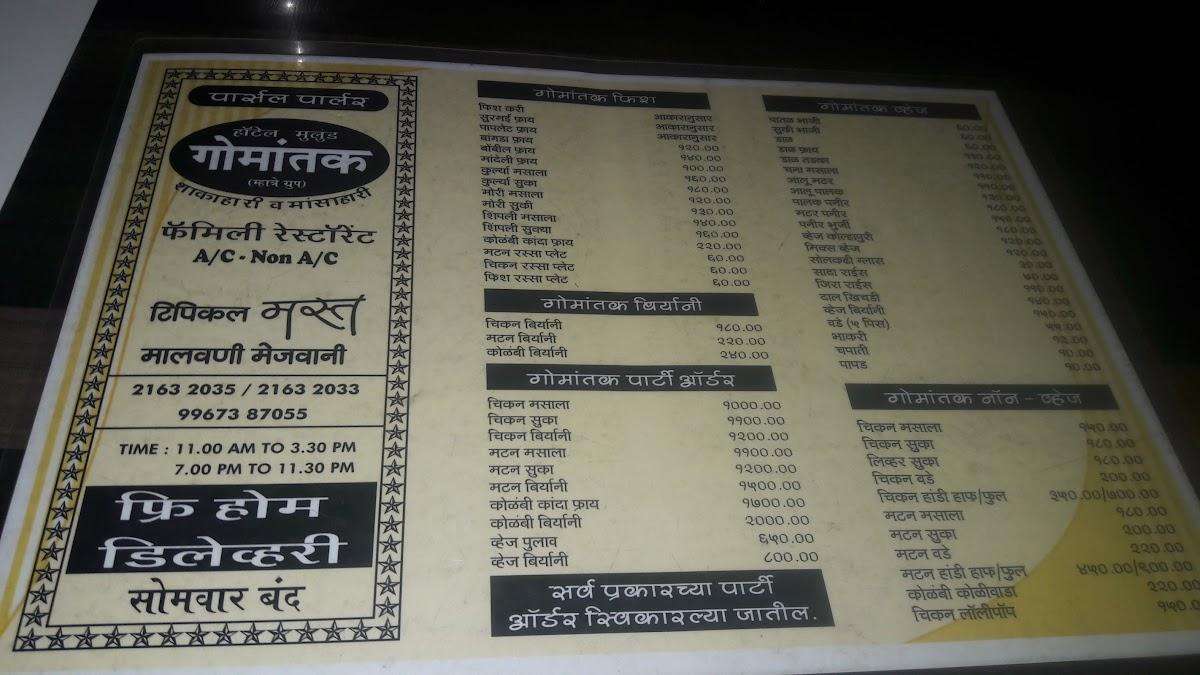 पार्सल पार्लर
हॉटेल मुलुंड
गोमांतक
(म्हात्रे ग्रुप)
शाकाहारी व मांसाहारी
फॅमिली रेस्टॉरेंट
A/C - Non A/C
टिपिकल मस्त
मालवणी मेजवानी
2163 2035 / 2163 2033
99673 87055
TIME : 11.00 AM TO 3.30 PM
7.00 PM TO 11.30 PM
फ्रि होम
डिलेव्हरी
सोमवार बंद
गोमांतक फिश
फिश करी आकारानुसार
सुरमई फ्राय आकारानुसार
पापलेट फ्राय आकारानुसार
बांगडा फ्राय १२०.००
बोंबील फ्राय १४०.००
मांदेली फ्राय १००.००
कुर्ल्या मसाला १६०.००
कुर्ल्या सुका १८०.००
मोरी मसाला १२०.००
मोरी सुकी १३०.००
शिंपली मसाला १४०.००
शिंपली सुक्या १६०.००
कोळंबी कांदा फ्राय २२०.००
मटन रस्सा प्लेट ६०.००
चिकन रस्सा प्लेट ६०.००
फिश रस्सा प्लेट ६०.००
गोमांतक बिर्यानी
चिकन बिर्यानी १८०.००
मटन बिर्यानी २२०.००
कोळंबी बिर्यानी २४०.००
गोमांतक पार्टी ऑर्डर
चिकन मसाला १०००.००
चिकन सुका ११००.००
चिकन बिर्यानी १२००.००
मटन मसाला ११००.००
मटन सुका १२००.००
मटन बिर्यानी १५००.००
कोळंबी कांदा फ्राय १७००.००
कोळंबी बिर्यानी २०००.००
व्हेज पुलाव ६५०.००
व्हेज बिर्यानी ८००.००
सर्व प्रकारच्या पार्टी
ऑर्डर स्विकारल्या जातील.
गोमांतक व्हेज
पातळ भाजी ६०.००
सुकी भाजी ६०.००
डाळ ६०.००
डाळ फ्राय
डाळ तडका
चना मसाला
आलू मटर
आलू पालक
पालक पनीर
मटर पनीर
पनीर भुर्जी
व्हेज कोल्हापुरी
मिक्स व्हेज
सोलकढी ग्लास
सादा राईस
जिरा राईस
दाल खिचडी
व्हेज बिर्यानी
वडे (५ पिस)
भाकरी
चपाती १०.००
पापड १०.००
गोमांतक नॉन - व्हेज
चिकन मसाला १५०.००
चिकन सुका १८०.००
लिव्हर सुका १८०.००
चिकन वडे २००.००
चिकन हांडी हाफ/फुल ३५०.००/७००.००
मटन मसाला १८०.००
मटन सुका २००.००
मटन वडे २२०.००
मटन हांडी हाफ/फुल ४५०.००/९००.००
कोळंबी कोळीवाडा २२०.००
चिकन लॉलीपॉप १५०.०